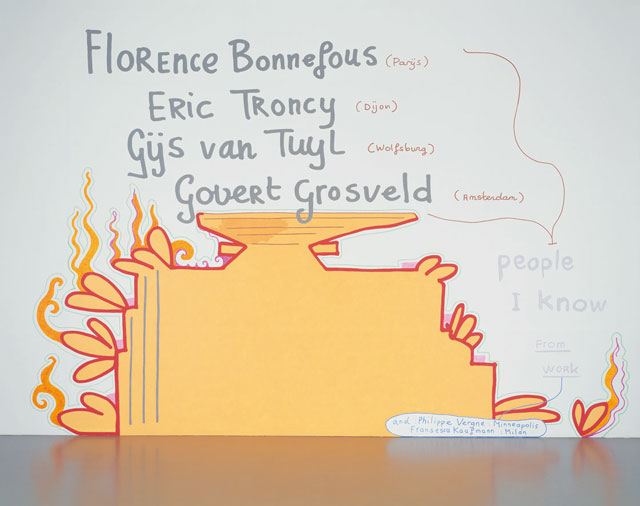 Florence Bonnefous (Parijs)
Eric Troncy (Dijon)
Gijs van Tuyl (Wolfsburg)
Govert Grosveld (Amsterdam)
people
I know
From
work
and Philippe Vergne Minneapolis
Fransesca Kaufmann Milan